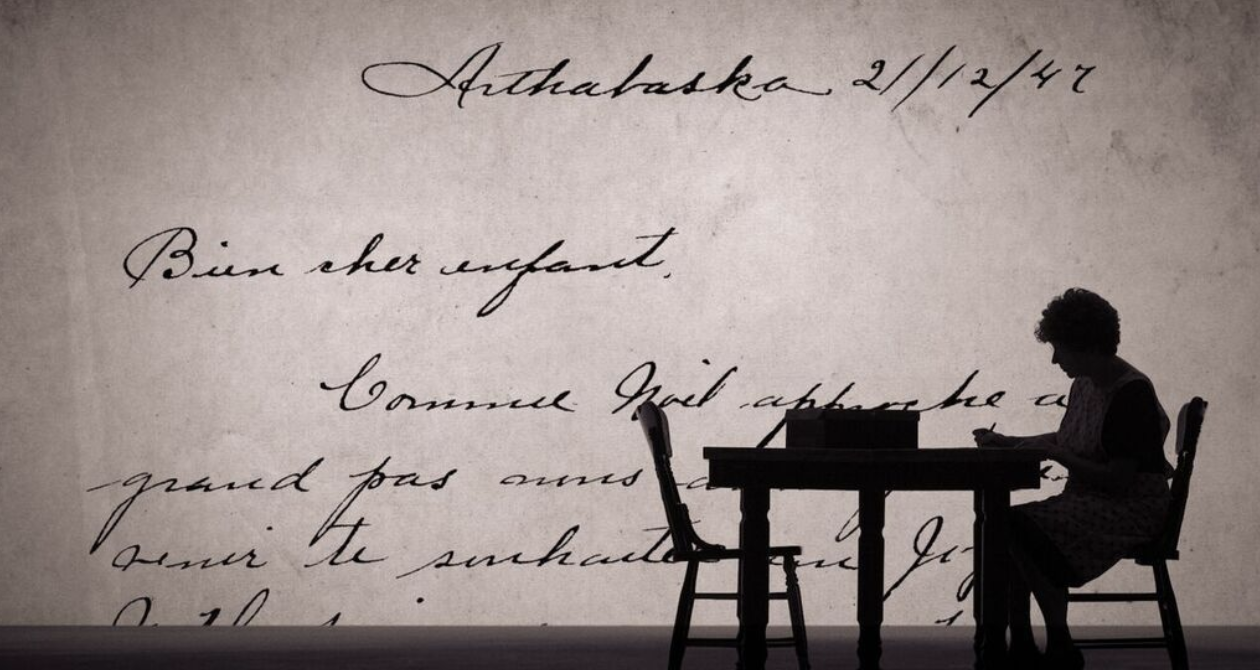 Arthabaska 21/12/47
Bien cher enfant,
Comme Noël approche a
grand pas nous
venir te souhaite un